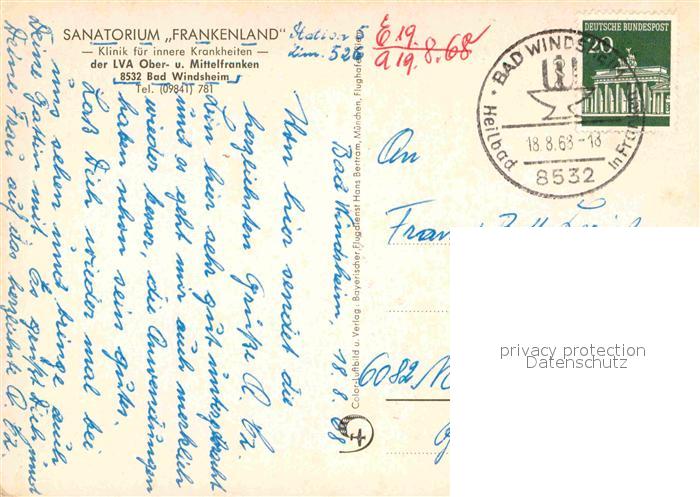 SANATORIUM „FRANKENLAND"
— Klinik für innere Krankheiten —
der LVA Ober- u. Mittelfranken
8532 Bad Windsheim
Tel. (09841) 781
Station 5
Zim. 526
E 19.
a 19.8.68
DEUTSCHE BUNDESPOST
20
BAD WINDSHEIM
Heilbad in Franken
18.8.68-18
8532
Bad Windsheim, 18.8.68
Von hier sendet die
herzlichsten Grüße
bin hier sehr gut untergebracht
und es geht mir auch merklich
wieder besser, die Anwendungen
haben schon sein gutes.
Laß Dich wieder mal bei
uns sehen und bringe auch
Deine Gattin mit. Es grüßt Dich und
Deine Frau auf das herzlichste
Color-Luftbild u. Verlag: Bayerischer Flugdienst Hans Bertram, München, Flughafen Riem
An
6082
privacy protection
Datenschutz